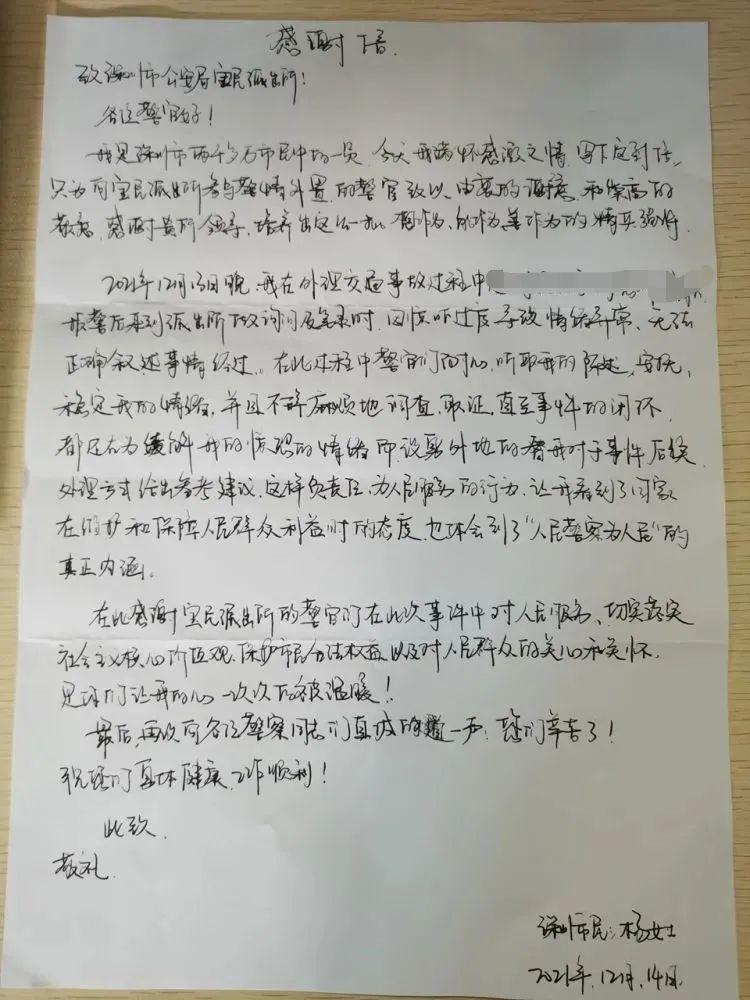 感谢信
致深圳市公安局宝民派出所！
各位警官好！
我是深圳市两千多万市民中的一员，今天我满怀感激之情，写下这封信，
只为向宝民派出所参与警情处置的警官致以由衷的谢意和崇高的
敬意，感谢贵所领导，培养出这么一批有作为、能作为、善作为的精兵强将
2021年12月13日晚，我在处理交通事故过程中
报警后来到派出所做询问及笔录时，因惊吓过度导致情绪异常，无法
正确叙述事情经过。在此过程中警官们耐心听取我的陈述，安抚、
稳定我的情绪，并且不辞麻烦地调查、取证，直至事件的闭环，
都还在为缓解我的惊恐的情绪即设身处地的替我对于事件后续
处理方式给出参考建议，这样负责任、为人民服务的行为，让我看到了国家
在维护和保障人民群众利益时的态度，也体会到了“人民警察为人民”的
真正内涵。
在此感谢宝民派出所的警官们在此次事件中对人民服务、切实落实
社会主义核心价值观、保护市民合法权益以及对人民群众的关心和关怀，
是你们让我的心一次次的被温暖！
最后，再次向各位警察同志们真诚的道一声：您们辛苦了！
祝您们身体健康，工作顺利！
此致
敬礼
深圳市民：杨女士
2021年12月14日